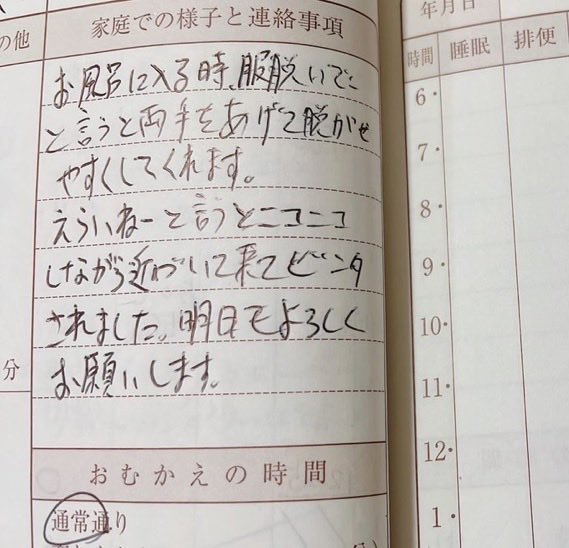 の他
家庭での様子と連絡事項
お風呂に入る時、服脱いでこ
と言うと両手をあげて脱がせ
やすくしてくれます。
えらいねーと言うとニコニコ
しながら近づいて来てビンタ
されました。明日もよろしく
お願いします。
分
おむかえの時間
通常通り
年月日
時間 睡眠 排便
6・
7・
8・
9・
10・
11・
12・
1・